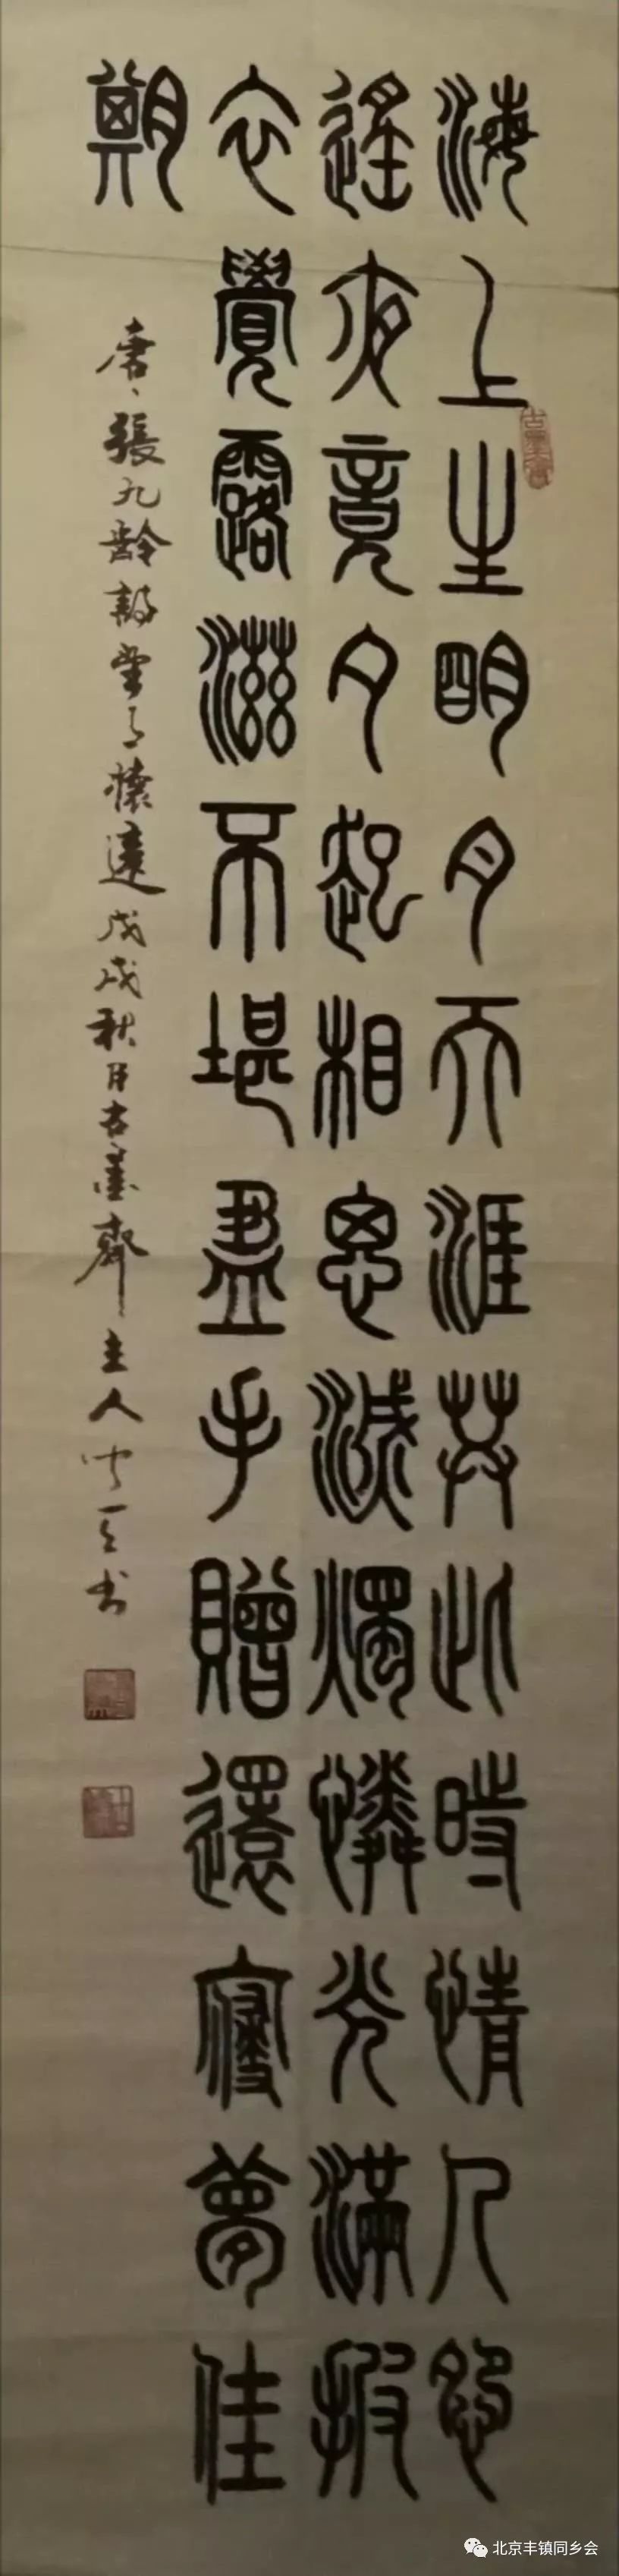 海上生明月天涯共此時情人怨
遙夜竟夕起相思滅燭憐光滿披
衣覺露滋不堪盈手贈還寢夢佳
期
唐張九齡詩望月懷遠戊戌秋月古墨齋主人書
古墨齋
北京丰镇同乡会